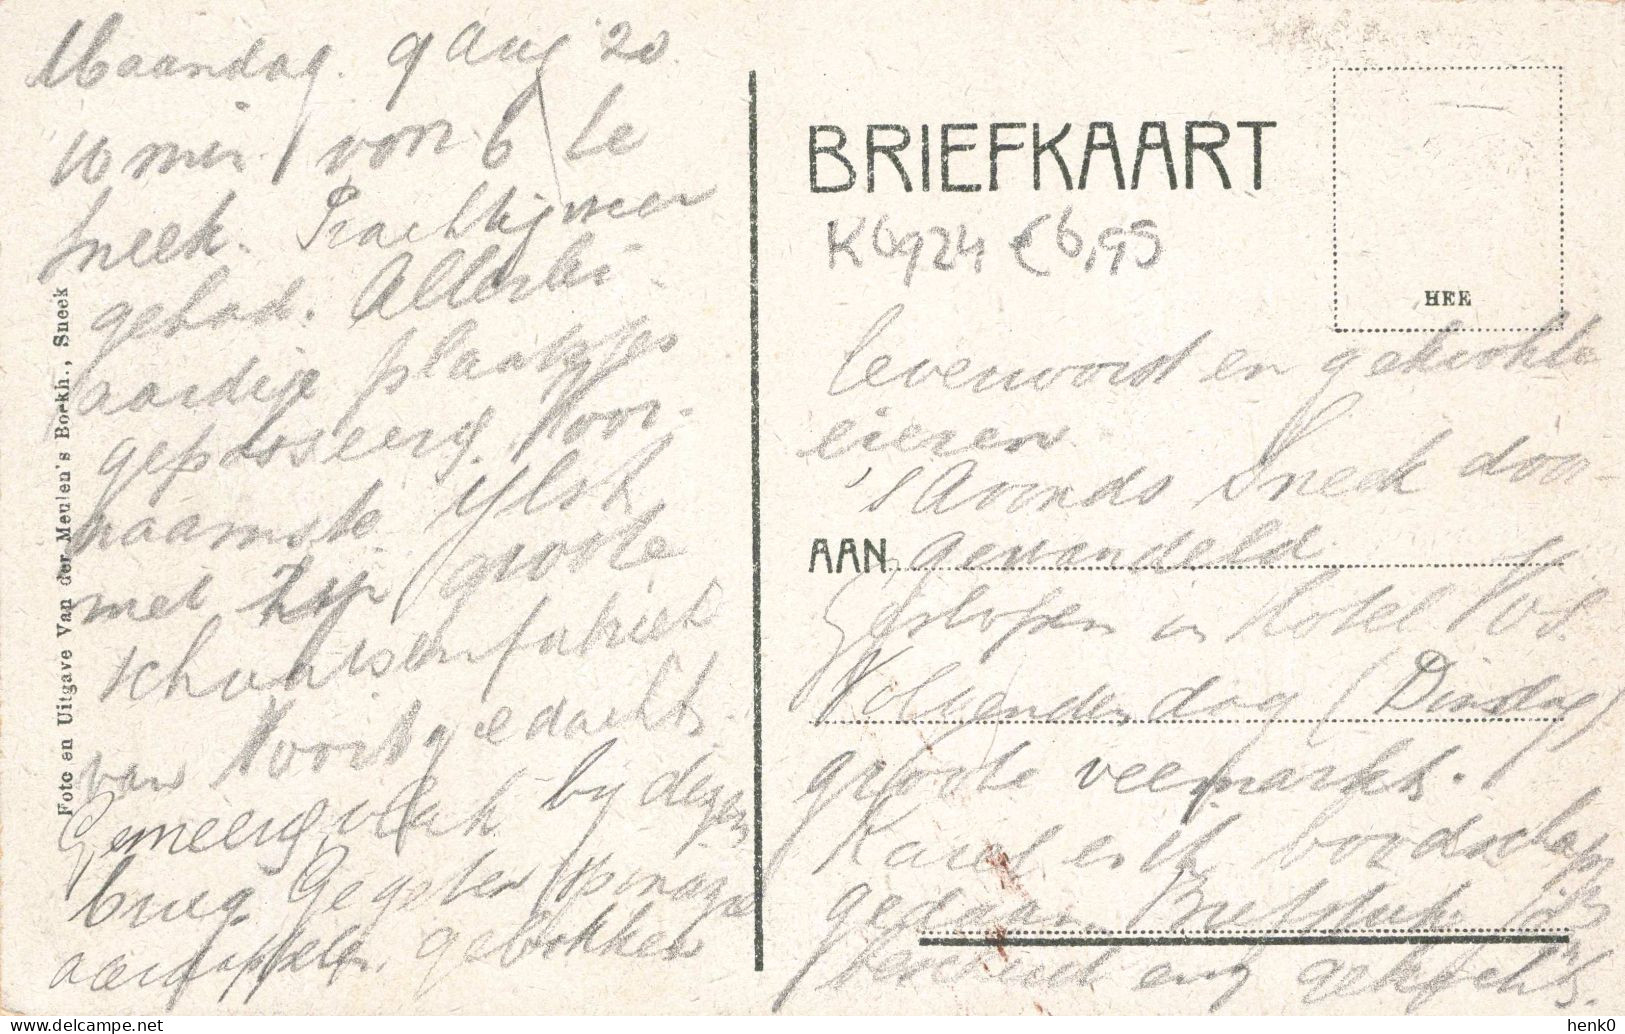 Maandag. 9 Aug '20.
10 min. voor 6 te
Sneek. Prachtig weer
gehad. Allerlei
aardige plaatsjes
gepasseerd. Voor-
naamste IJlst
met zijn groote
schaatsenfabriek
van Nooitgedacht.
Gemeerd vlak bij deze
brug. Gegeten spinazie
aardappelen, gebakken
Foto en Uitgave Van der Meulen's Boekh., Sneek
BRIEFKAART
K6924 €6,95
HEE
leverworst en gekookte
eieren.
's Avonds Sneek door-
AAN gewandeld.
Geslapen in Hotel
Volgenden dag (Dinsdag)
groote veemarkt.
Karel en ik boodschap
gedaan.
beschuit enz gekocht.
henk0